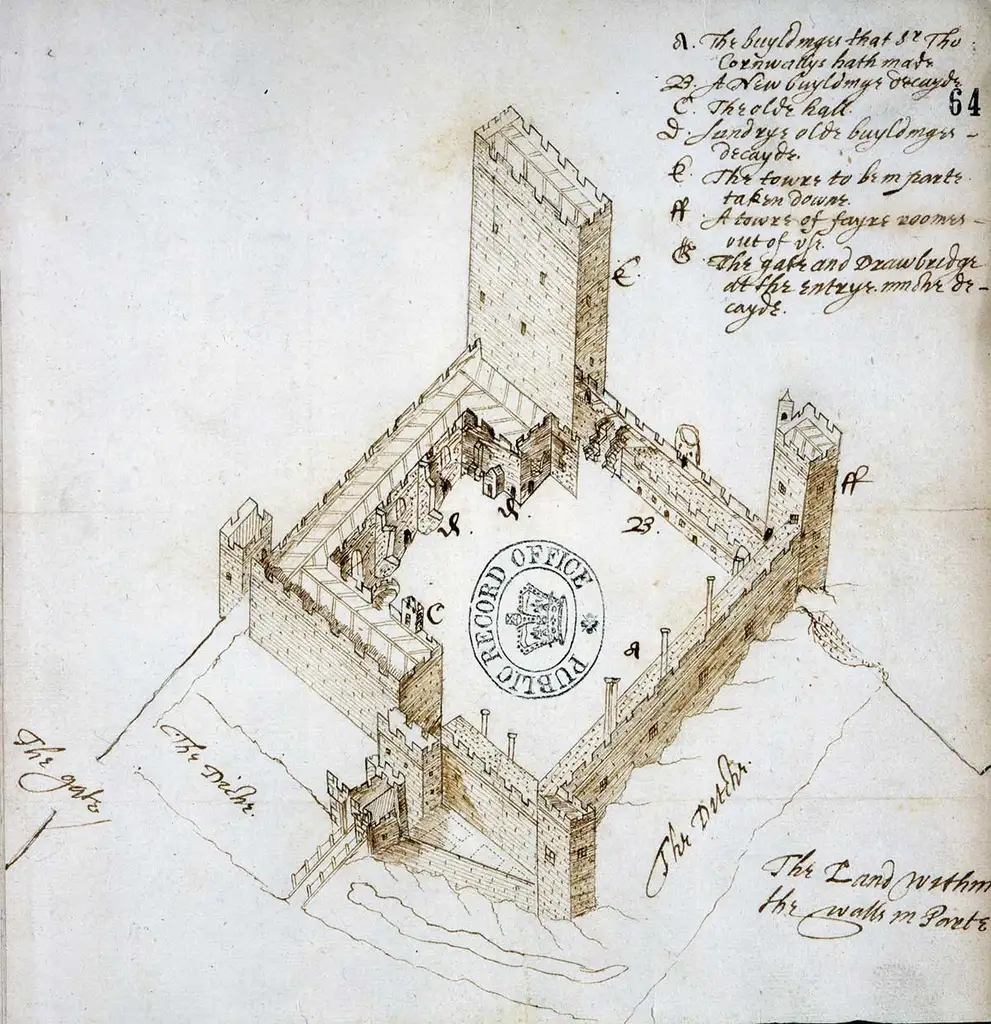 A. The buyldinges that Sr Tho
Cornwallys hath made
B. A New buyldinge decayde
64
C. The olde hall
D. Sundrye olde buyldinges -
decayde.
E. The towre to be in parte
taken downe
ff A towre of fayre roomes -
out of use.
G The gate and Drawbridge
at the entrye muche de-
cayde.
E.
ff
B
C
A
PUBLIC RECORD OFFICE
The gate
The Ditche.
The Ditche.
The Land within
the walls in Parte